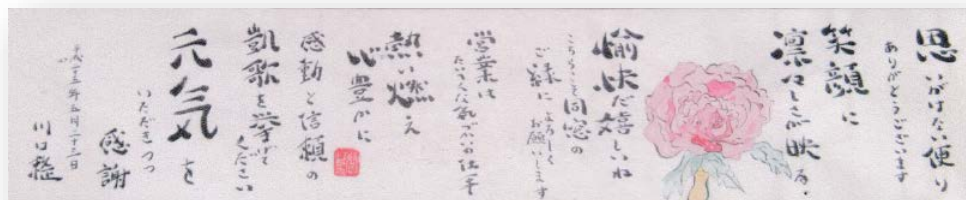 思いがけない便り
ありがとうございます
笑顔に
凛々しさが映る・
愉快だ嬉しいね
こちらこそ同窓の
ご縁によろしく
お願いします
営業は
たいへんな気づかいの仕事
熱い燃え
心豊かに
感動と信頼の
凱歌を挙げて
ください
元気を
いただきつつ
感謝
平成二十三年五月二十二日
川口整